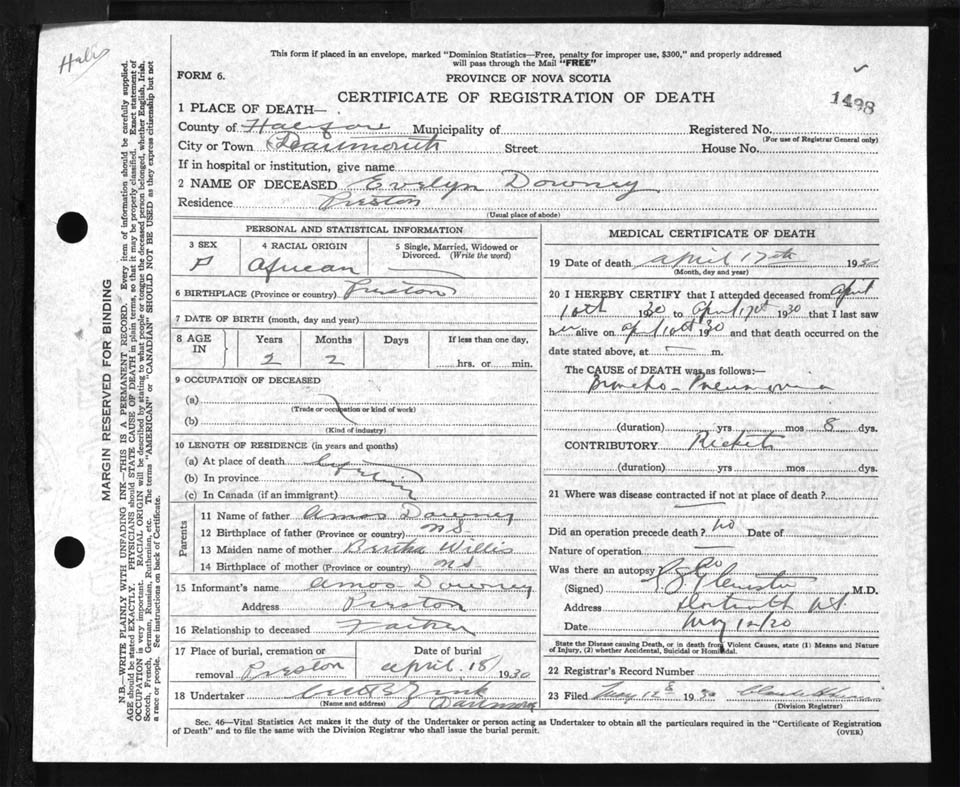 Hali
This form if placed in an envelope, marked "Dominion Statistics—Free, penalty for improper use, $300," and properly addressed
will pass through the Mail "FREE"
FORM 6.
PROVINCE OF NOVA SCOTIA
CERTIFICATE OF REGISTRATION OF DEATH
1498
1 PLACE OF DEATH—
County of Halifax Municipality of
Registered No.
(For use of Registrar General only)
City or Town Dartmouth Street House No.
If in hospital or institution, give name
2 NAME OF DECEASED Evelyn Downey
Residence Preston
(Usual place of abode)
MARGIN RESERVED FOR BINDING
N.B.—WRITE PLAINLY WITH UNFADING INK—THIS IS A PERMANENT RECORD. Every item of information should be carefully supplied.
AGE should be stated EXACTLY. PHYSICIANS should STATE CAUSE OF DEATH in plain terms, so that it may be properly classified. Exact statement of
OCCUPATION is very important. RACIAL ORIGIN will be described by stating to what people or tongue the deceased person belonged, whether English, Irish,
Scotch, French, German, Russian, Ruthenian, etc. The terms "AMERICAN" or "CANADIAN" SHOULD NOT BE USED as they express citizenship but not
a race or people. See instructions on back of Certificate.
PERSONAL AND STATISTICAL INFORMATION
3 SEX
4 RACIAL ORIGIN African
5 Single, Married, Widowed or
Divorced. (Write the word)
6 BIRTHPLACE (Province or country) Preston
7 DATE OF BIRTH (month, day and year)
8 AGE IN
Years Months Days If less than one day,
2 2 hrs. or min.
9 OCCUPATION OF DECEASED
(a)
(Trade or occupation or kind of work)
(b)
(Kind of industry)
10 LENGTH OF RESIDENCE (in years and months)
(a) At place of death
(b) In province
(c) In Canada (if an immigrant)
Parents
11 Name of father Amos Downey
12 Birthplace of father (Province or country) NS
13 Maiden name of mother Bertha Willis
14 Birthplace of mother (Province or country) NS
15 Informant's name Amos Downey
Address Preston
16 Relationship to deceased Father
17 Place of burial, cremation or
removal Preston
Date of burial
April 18 1930
18 Undertaker Zink
(Name and address) Dartmouth
MEDICAL CERTIFICATE OF DEATH
19 Date of death April 17th 1930
(Month, day and year)
20 I HEREBY CERTIFY that I attended deceased from April
10th 1930 to April 17th 1930 that I last saw
her alive on April 10th 1930 and that death occurred on the
date stated above, at — m.
The CAUSE of DEATH was as follows:—
Broncho-Pneumonia
(duration) yrs mos 8 dys.
CONTRIBUTORY Rickets
(duration) yrs mos dys.
21 Where was disease contracted if not at place of death?
Did an operation precede death? No Date of
Nature of operation —
Was there an autopsy No
(Signed) M.D.
Address
Date May 12/30
State the Disease causing Death, or in death from Violent Causes, state (1) Means and Nature
of Injury, (2) whether Accidental, Suicidal or Homicidal.
22 Registrar's Record Number
23 Filed May 12th 1930
(Division Registrar)
Sec. 46—Vital Statistics Act makes it the duty of the Undertaker or person acting as Undertaker to obtain all the particulars required in the "Certificate of Registration
of Death" and to file the same with the Division Registrar who shall issue the burial permit.
(OVER)